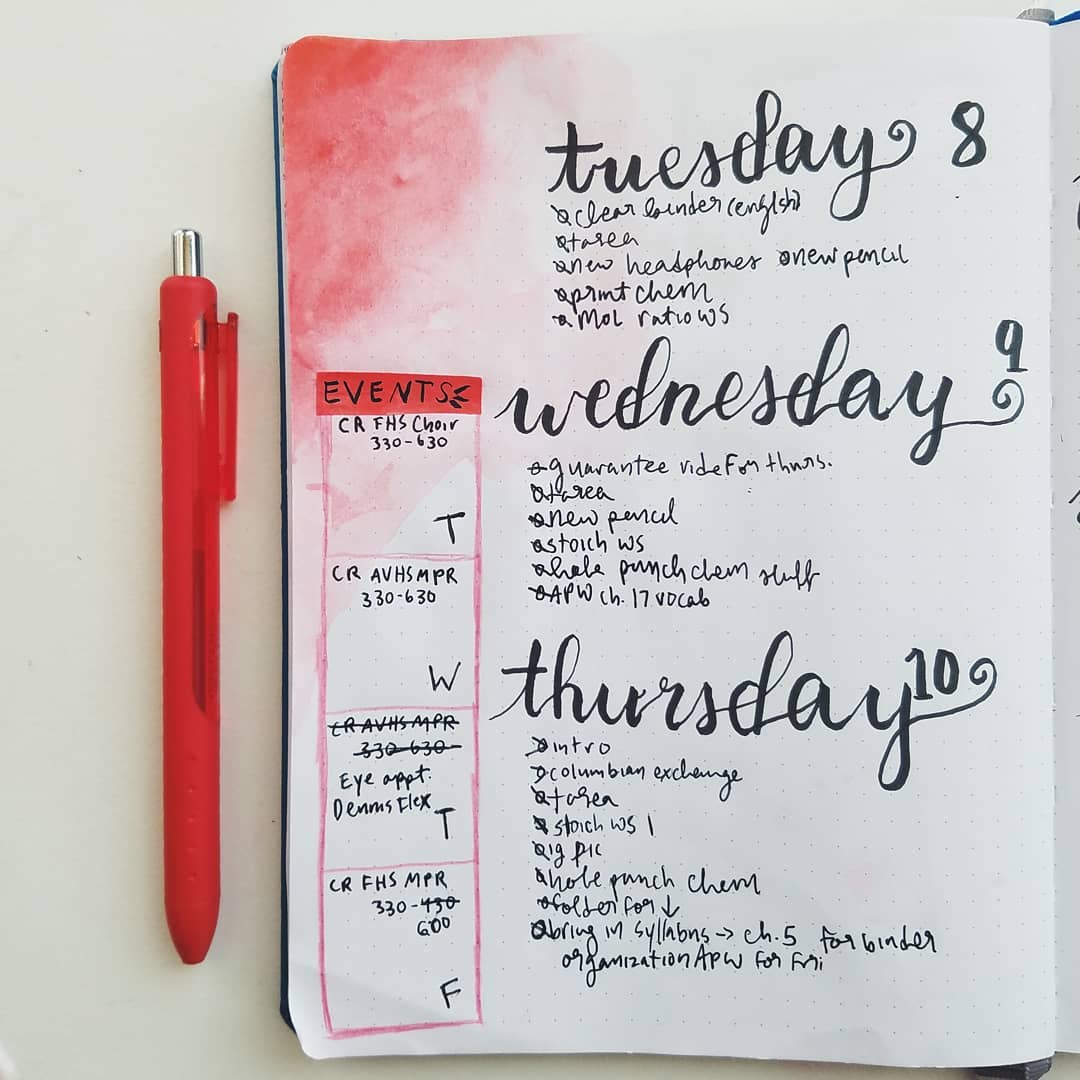 tuesday 8
clear binder (english)
tarea
new headphones new pencil
print chem
Mol ratio WS
EVENTS
CR FHS Choir
330-630
T
CR AVHS MPR
330-630
W
CR AVHS MPR
330-630
Eye appt.
Dennis Flex
T
CR FHS MPR
330-430
600
F
wednesday 9
guarantee ride For thurs.
tarea
new pencil
stoich ws
hole punch chem stuff
APW ch. 17 vocab
thursday 10
intro
columbian exchange
tarea
stoich WS 1
ig pic
hole punch chem
folder for ↓
bring in syllabus → ch. 5 for binder
organization APW For Fri